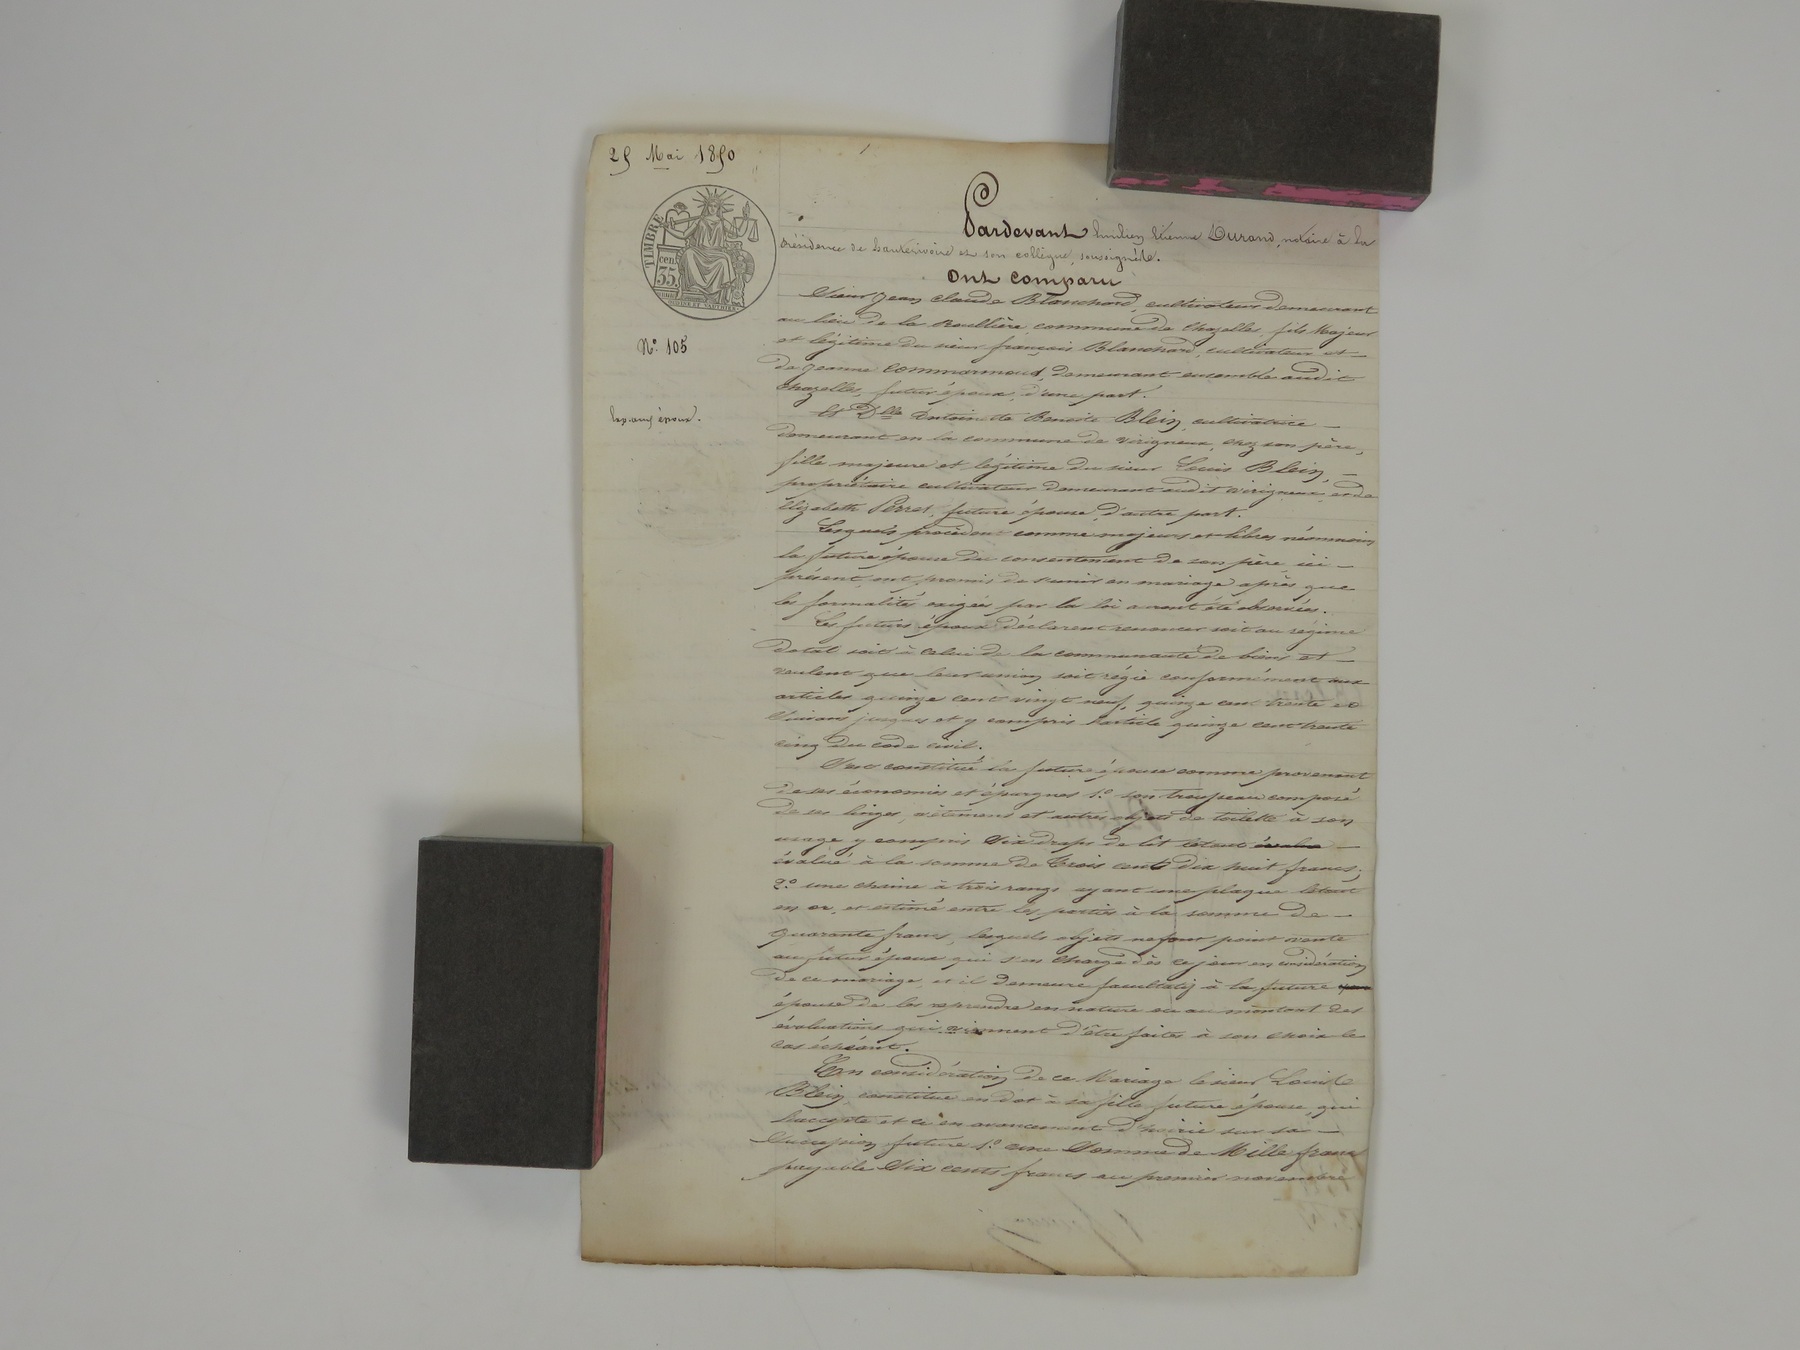 25 Mai 1850
TIMBRE
cen.
35
N° 105
Pardevant Etienne Durand, notaire à la
résidence de hauterivoire et son collègue, soussignés.
Ont comparu
Sieur Jean Claude Blanchard, cultivateur demeurant
au lieu de la Roullière commune de Chazelles, fils Majeur
et légitime du sieur françois Blanchard, cultivateur et
de Jeanne Commarmond, demeurant ensemble audit
Chazelles, futur époux, d'une part.
Et Dlle Antoinette Benoite Blein, cultivatrice
demeurant en la commune de Virigneux, chez son père,
fille majeure et légitime du sieur Louis Blein,
propriétaire cultivateur demeurant audit Virigneux, et de
Elizabeth Perret, future épouse, d'autre part.
Lesquels procédant comme majeurs et libres néanmoins
la future épouse du consentement de son père ici
présent, ont promis de s'unir en mariage après que
les formalités exigées par la loi auront été observées.
Les futurs époux déclarent renoncer soit au régime
dotal soit à celui de la communauté de biens et
veulent que leur union soit régie conformément aux
articles quinze cent vingt neuf, quinze cent trente et
suivans jusques et y compris l'article quinze cent trente
cinq du code civil.
S'est constitué la future épouse comme provenant
de ses économies et épargnes 1° son trousseau composé
de ses linges, vêtemens et autres objets de toilette à son
usage y compris six draps de lit letout
évalué à la somme de Trois cents dix huit francs;
2° une chaine à trois rangs ayant une plaque letout
en or, et estimé entre les parties à la somme de
quarante francs, lesquels objets ne font point vente
au futur époux qui s'en charge dès ce jour en considération
de ce mariage, et il demeure facultatif à la future
épouse de les reprendre en nature ou au montant des
évaluations qui viennent d'être faites à son choix le
cas échéant.
En considération de ce Mariage le sieur Louis
Blein, constitue en dot à sa fille future épouse, qui
l'accepte et ce en avancement d'hoirie sur sa
succession future 1° une somme de Mille francs
payable Six cents francs au premier novembre